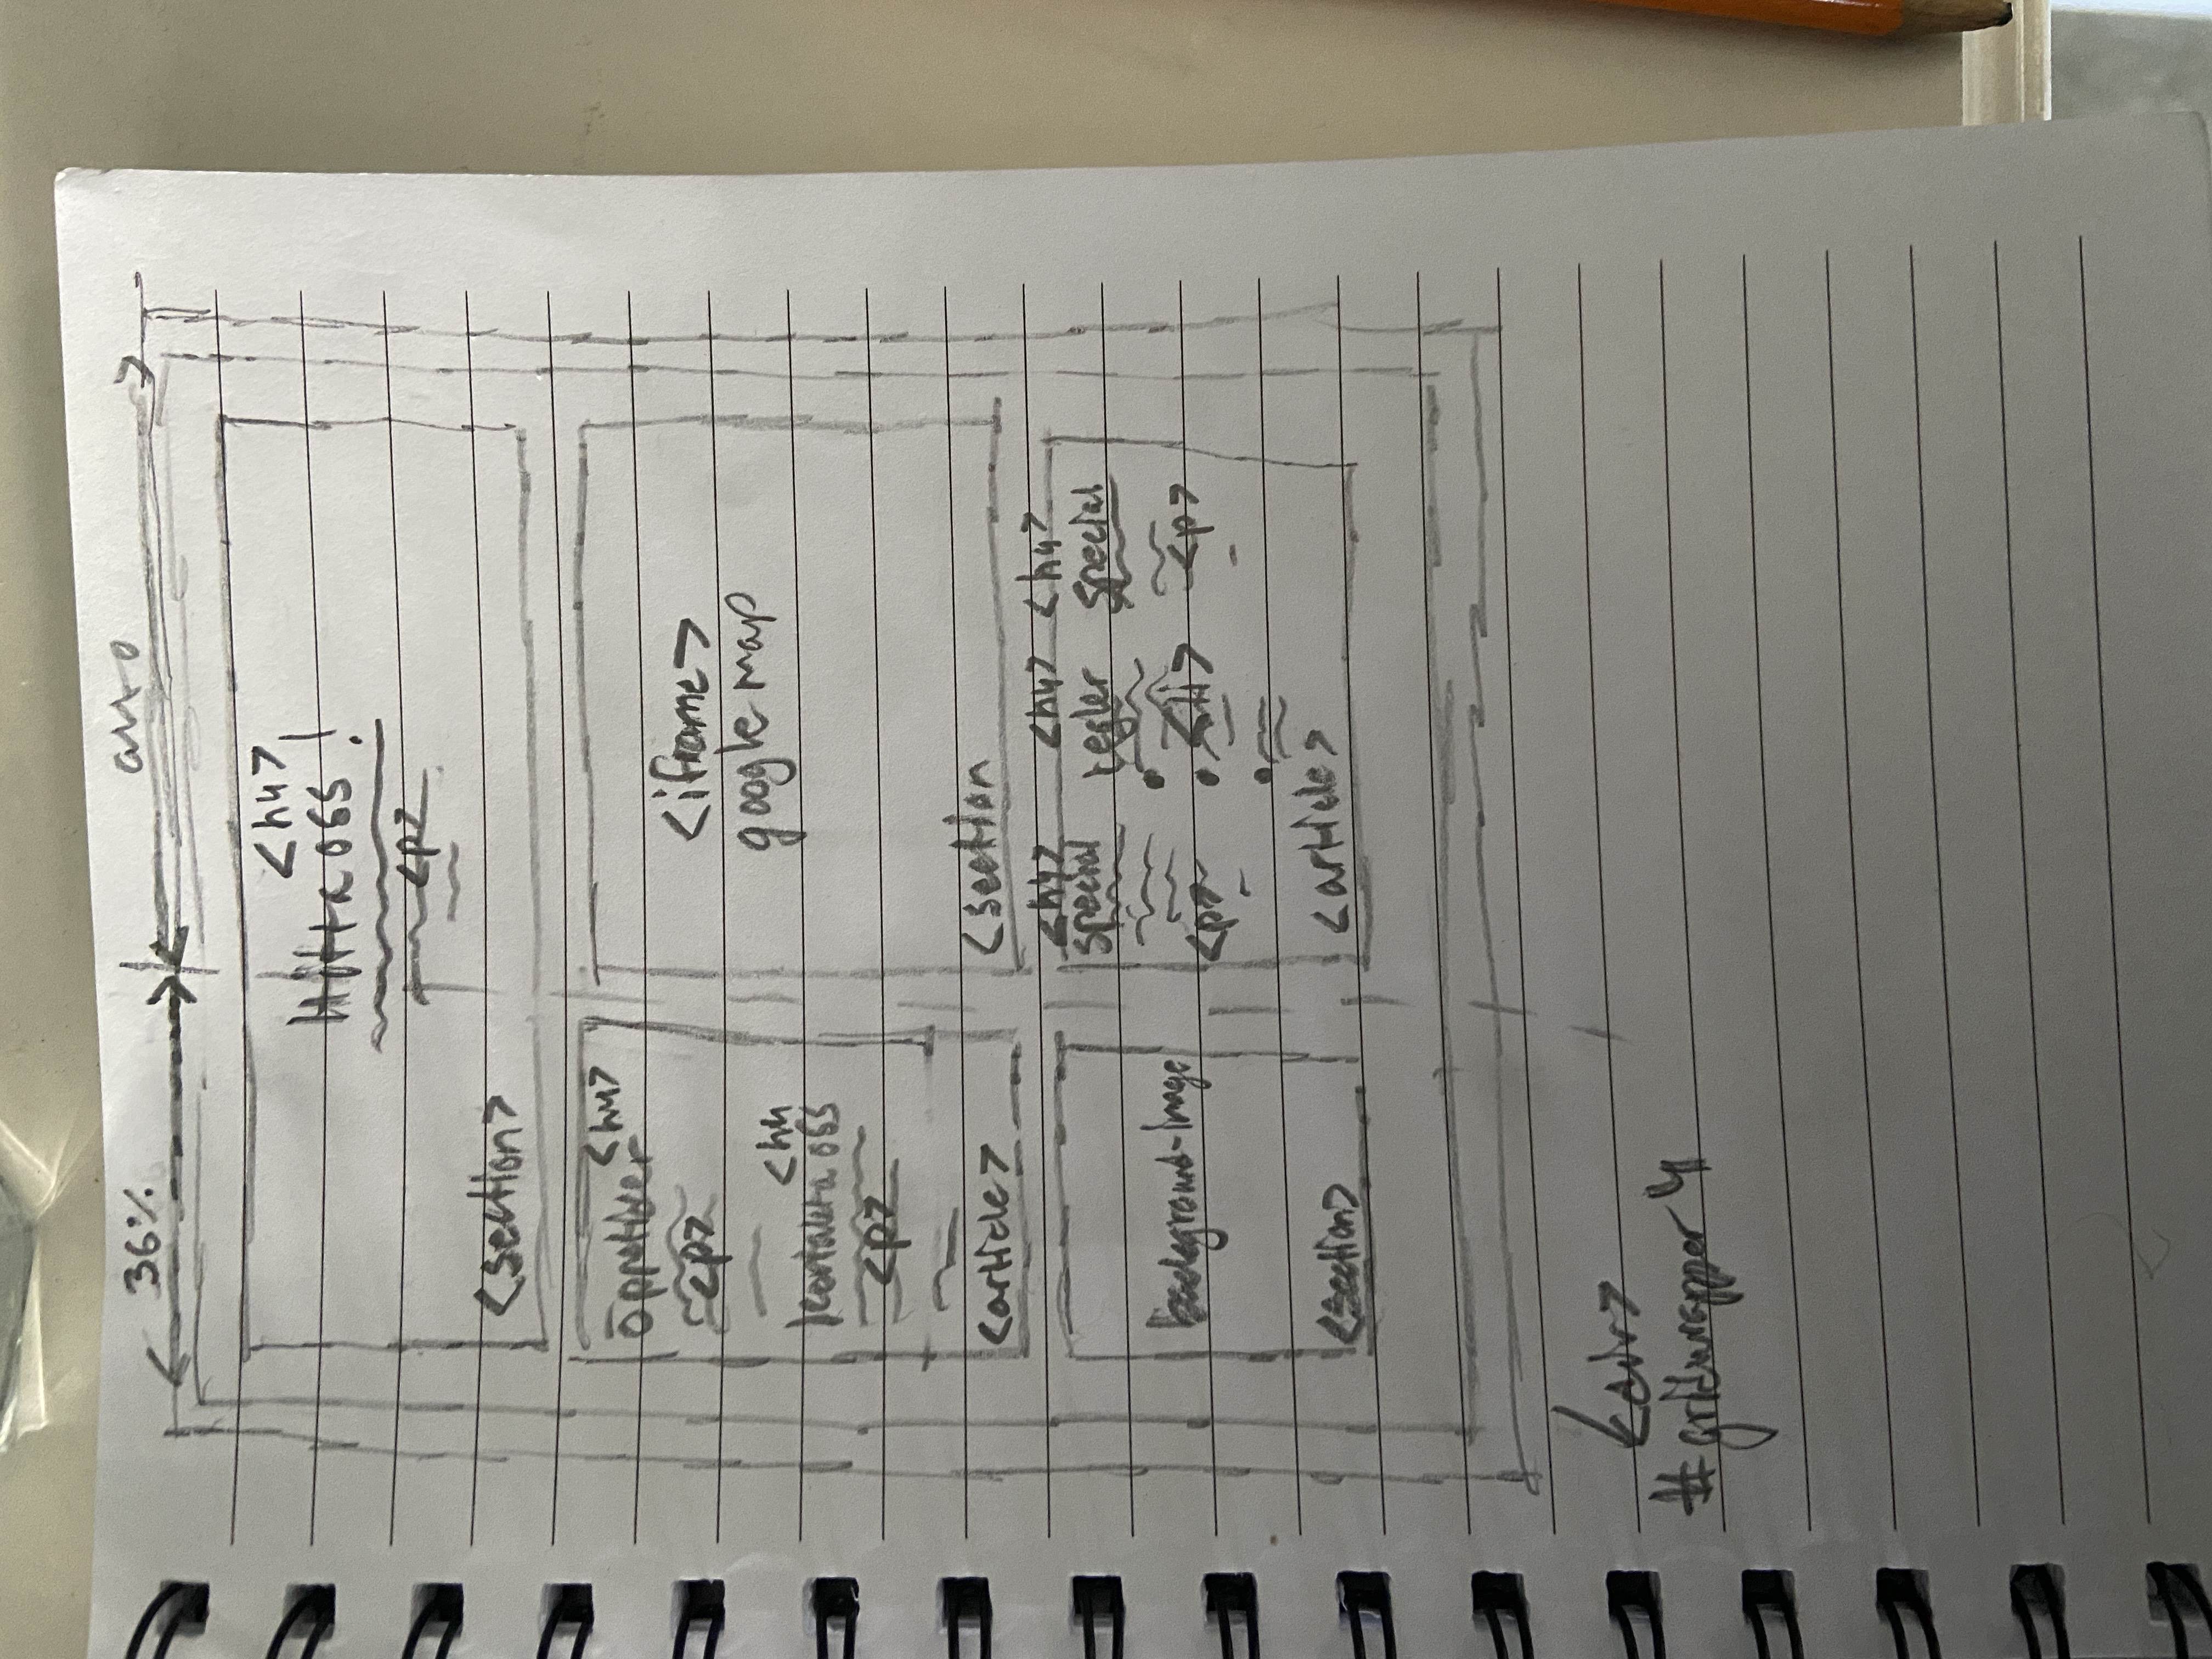 36% auto
<h4>
Hitta oss!
<p>
<section>
<h4>
Öppetider
<p>
<h4
Kontakta oss
<p>
<article>
<iframe>
google map
<section
background-image
<section>
<h4> <h4> <h4>
special regler special
<p> <li> <p>
<article>
<div>
#gridwrapper4